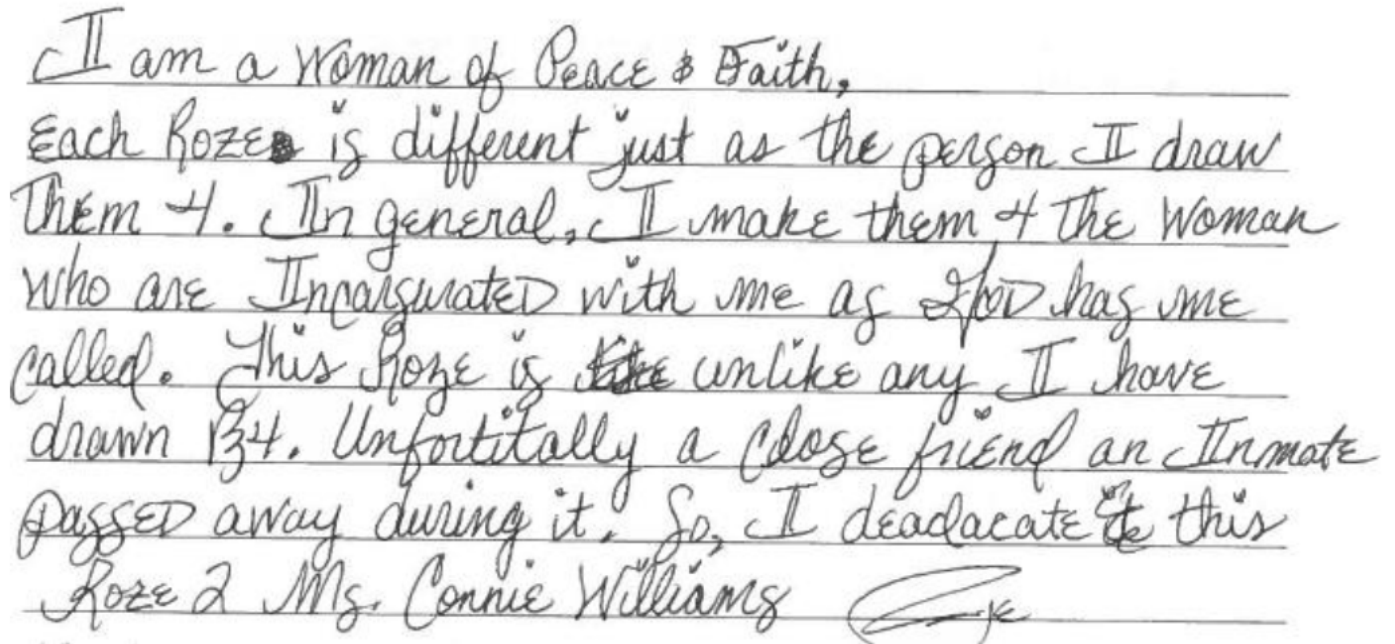 I am a Woman of Peace & Faith,
Each Roze is different just as the person I draw
Them 4. In general, I make them 4 The Woman
who are IncarsurateD with me as GoD has me
called. This Roze is unlike any I have
drawn B4. Unfortitally a close friend an Inmate
passeD away during it. So, I deadacate this
Roze 2 Ms. Connie Williams